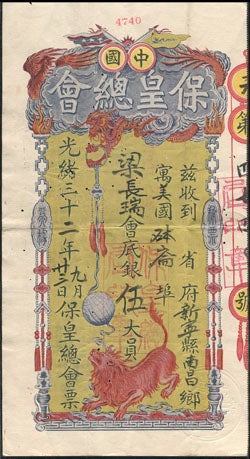 4740
中國
保皇總會
茲收到 省 府新寧縣南昌鄉
寓美國砵崙 埠
梁長瑞會底銀伍大員
光緒三十二年九月廿二日保皇總會票
號